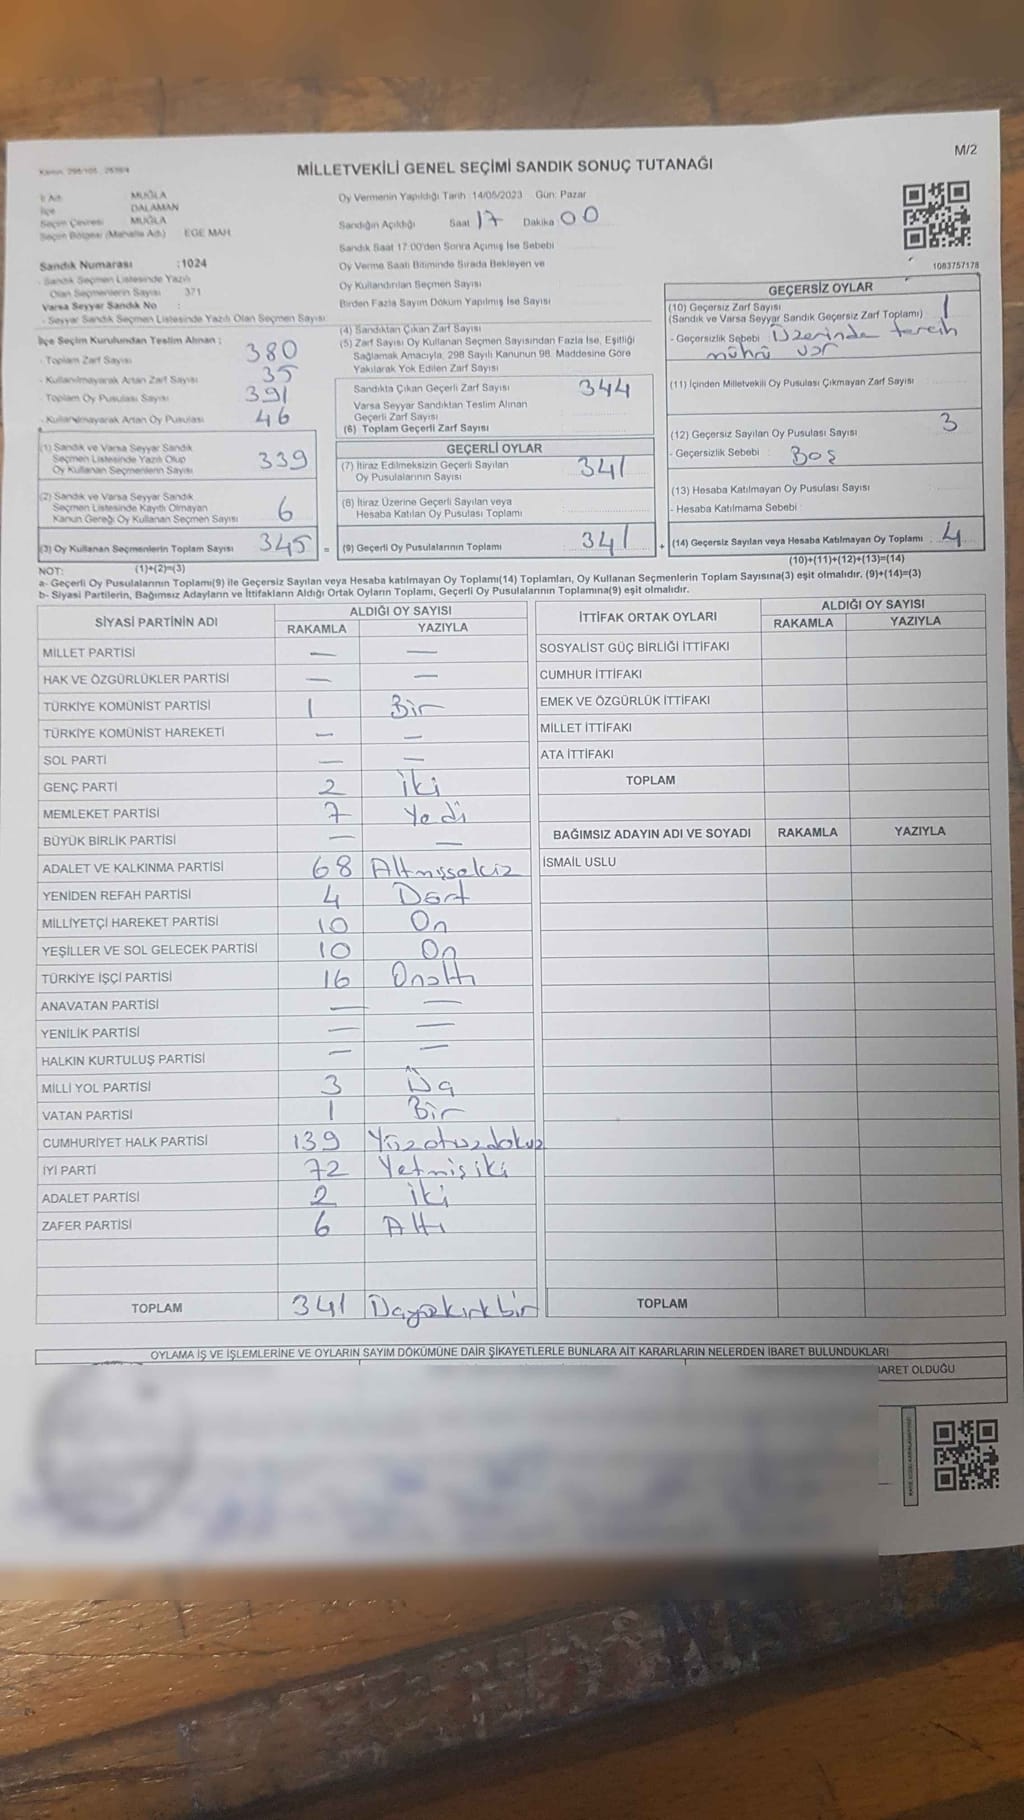 MİLLETVEKİLİ GENEL SEÇİMİ SANDIK SONUÇ TUTANAĞI
M/2
İl Adı MUĞLA
İlçe DALAMAN
Seçim Çevresi MUĞLA
Seçim Bölgesi (Mahalle Adı) EGE MAH.
Sandık Numarası :1024
- Sandık Seçmen Listesinde Yazılı
Olan Seçmenlerin Sayısı 371
Varsa Seyyar Sandık No :
- Seyyar Sandık Seçmen Listesinde Yazılı Olan Seçmen Sayısı
Oy Vermenin Yapıldığı Tarih :14/05/2023 Gün: Pazar
Sandığın Açıldığı Saat 17 Dakika 00
Sandık Saat 17:00'den Sonra Açımış İse Sebebi
Oy Verme Saati Bitiminde Sırada Bekleyen ve
Oy Kullandırılan Seçmen Sayısı
Birden Fazla Sayım Döküm Yapılmış İse Sayısı
1083757178
İlçe Seçim Kurulundan Teslim Alınan :
- Toplam Zarf Sayısı 380
- Kullanılmayarak Artan Zarf Sayısı 35
- Toplam Oy Pusulası Sayısı 391
- Kullanılmayarak Artan Oy Pusulası 46
(1) Sandık ve Varsa Seyyar Sandık
Seçmen Listesinde Yazılı Olup
Oy Kullanan Seçmenlerin Sayısı 339
(2) Sandık ve Varsa Seyyar Sandık
Seçmen Listesinde Kayıtlı Olmayan
Kanun Gereği Oy Kullanan Seçmen Sayısı 6
(3) Oy Kullanan Seçmenlerin Toplam Sayısı 345 =
(4) Sandıktan Çıkan Zarf Sayısı
(5) Zarf Sayısı Oy Kullanan Seçmen Sayısından Fazla İse, Eşitliği
Sağlamak Amacıyla, 298 Sayılı Kanunun 98. Maddesine Göre
Yakılarak Yok Edilen Zarf Sayısı
Sandıkta Çıkan Geçerli Zarf Sayısı 344
Varsa Seyyar Sandıktan Teslim Alınan
Geçerli Zarf Sayısı
(6) Toplam Geçerli Zarf Sayısı
GEÇERLİ OYLAR
(7) İtiraz Edilmeksizin Geçerli Sayılan
Oy Pusulalarının Sayısı 341
(8) İtiraz Üzerine Geçerli Sayılan veya
Hesaba Katılan Oy Pusulası Toplamı
(9) Geçerli Oy Pusulalarının Toplamı 341 +
GEÇERSİZ OYLAR
(10) Geçersiz Zarf Sayısı
(Sandık ve Varsa Seyyar Sandık Geçersiz Zarf Toplamı) 1
- Geçersizlik Sebebi Üzerinde tercih
mührü var
(11) İçinden Milletvekili Oy Pusulası Çıkmayan Zarf Sayısı
(12) Geçersiz Sayılan Oy Pusulası Sayısı 3
- Geçersizlik Sebebi : Boş
(13) Hesaba Katılmayan Oy Pusulası Sayısı
- Hesaba Katılmama Sebebi
(14) Geçersiz Sayılan veya Hesaba Katılmayan Oy Toplamı : 4
NOT: (1)+(2)=(3)
(10)+(11)+(12)+(13)=(14)
a- Geçerli Oy Pusulalarının Toplamı(9) ile Geçersiz Sayılan veya Hesaba katılmayan Oy Toplamı(14) Toplamları, Oy Kullanan Seçmenlerin Toplam Sayısına(3) eşit olmalıdır. (9)+(14)=(3)
b- Siyasi Partilerin, Bağımsız Adayların ve İttifakların Aldığı Ortak Oyların Toplamı, Geçerli Oy Pusulalarının Toplamına(9) eşit olmalıdır.
SİYASİ PARTİNİN ADI ALDIĞI OY SAYISI
RAKAMLA YAZIYLA
MİLLET PARTİSİ — —
HAK VE ÖZGÜRLÜKLER PARTİSİ — —
TÜRKİYE KOMÜNİST PARTİSİ 1 Bir
TÜRKİYE KOMÜNİST HAREKETİ — —
SOL PARTİ — —
GENÇ PARTİ 2 İki
MEMLEKET PARTİSİ 7 Yedi
BÜYÜK BİRLİK PARTİSİ — —
ADALET VE KALKINMA PARTİSİ 68 Altmışsekiz
YENİDEN REFAH PARTİSİ 4 Dört
MİLLİYETÇİ HAREKET PARTİSİ 10 On
YEŞİLLER VE SOL GELECEK PARTİSİ 10 On
TÜRKİYE İŞÇİ PARTİSİ 16 Onaltı
ANAVATAN PARTİSİ — —
YENİLİK PARTİSİ — —
HALKIN KURTULUŞ PARTİSİ — —
MİLLİ YOL PARTİSİ 3 Üç
VATAN PARTİSİ 1 Bir
CUMHURİYET HALK PARTİSİ 139 Yüzotuzdokuz
İYİ PARTİ 72 Yetmişiki
ADALET PARTİSİ 2 İki
ZAFER PARTİSİ 6 Altı
TOPLAM 341
İTTİFAK ORTAK OYLARI ALDIĞI OY SAYISI
RAKAMLA YAZIYLA
SOSYALİST GÜÇ BİRLİĞİ İTTİFAKI
CUMHUR İTTİFAKI
EMEK VE ÖZGÜRLÜK İTTİFAKI
MİLLET İTTİFAKI
ATA İTTİFAKI
TOPLAM
BAĞIMSIZ ADAYIN ADI VE SOYADI RAKAMLA YAZIYLA
İSMAİL USLU
TOPLAM
OYLAMA İŞ VE İŞLEMLERİNE VE OYLARIN SAYIM DÖKÜMÜNE DAİR ŞİKAYETLERLE BUNLARA AİT KARARLARIN NELERDEN İBARET BULUNDUKLARI
BARET OLDUĞU